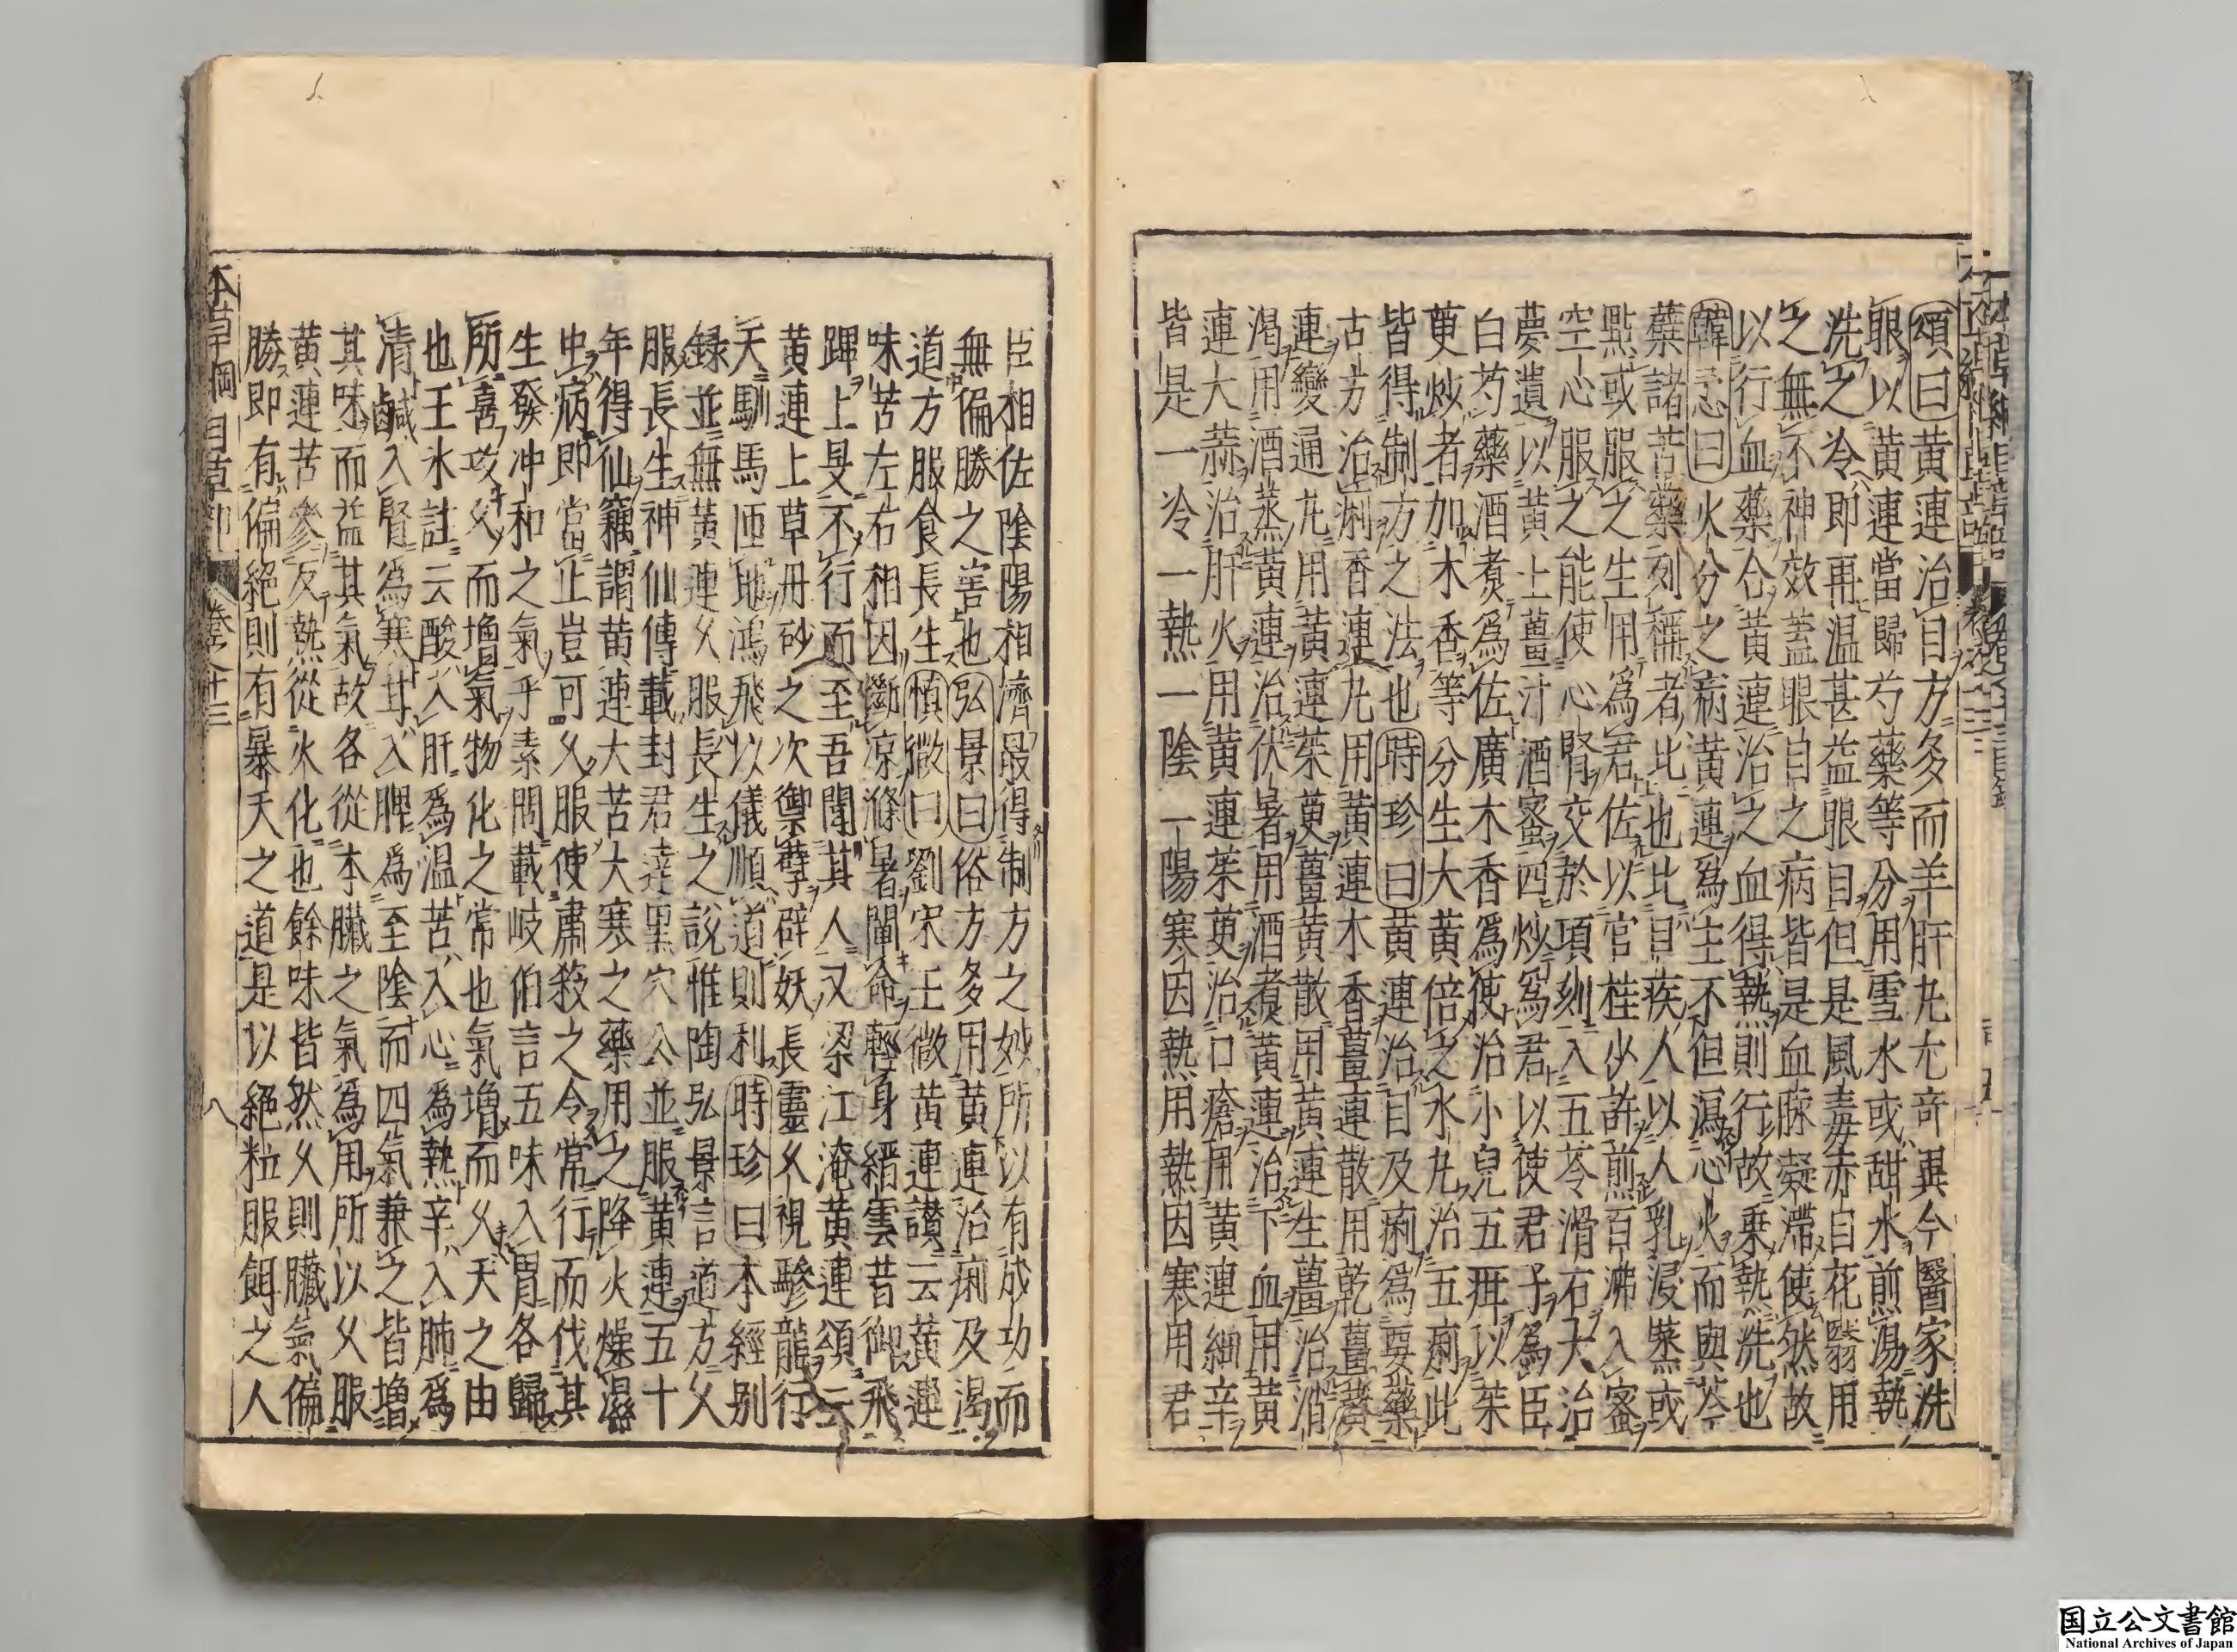 頌曰黄連治目方多而羊肝丸尤奇異今醫家洗
眼以黄連當歸芍藥等分用雪水或甜水煎湯熱
洗之冷即再温甚益眼目但是風毒赤目花翳用
之無不神效蓋眼目之病皆是血脉凝滯使然故
以行血藥合黄連治之血得熱則行故乗熱洗也
韓㤅曰火分之病黄連爲主不但瀉心火而與芩
蘗諸苦藥列稱者比也目疾人以人乳浸蒸或
點或服之生用爲君佐以官桂少許煎百沸入蜜
空心服之能使心腎交於頃刻入五苓滑石大治
夢遺以黄土薑汁酒蜜四炒爲君以使君子爲臣
白芍藥酒煮爲佐廣木香爲使治小兒五疳以茱
萸炒者加木香等分生大黄倍之水丸治五痢此
皆得制方之法也時珍曰黄連治目及痢爲要藥
古方治痢香連丸用黄連木香薑連散用乾薑黄
連變通丸用黄連茱萸薑黄散用黄連生薑治消
渴用酒蒸黄連治伏暑用酒煮黄連治下血用黄
連大蒜治肝火用黄連茱萸治口瘡用黄連細辛
皆是一冷一熱一陰一陽寒因熱用熱因寒用君
臣相佐陰陽相濟最得制方之妙所以有成功而
無偏勝之害也弘景曰俗方多用黄連治痢及渴
道方服食長生慎微曰劉宋王微黄連讃云黄連
味苦左右相因斷凉滌暑闡命輕身縉雲昔御飛
蹕上旻不行而至吾聞其人又梁江淹黄連頌云
黄連上草丹砂之次禦孽辟妖長靈久視驂龍行
天馴馬匝地鴻飛以儀順道則利時珍曰本經别
録並無黄連久服長生之說惟陶弘景言道方久
服長生神仙傳載封君達黒穴公並服黄連五十
年得仙竊謂黄連大苦大寒之藥用之降火燥濕
中病即當止豈可久服使肅殺之令常行而伐其
生發冲和之氣乎素問載岐伯言五味入胃各歸
所喜攻久而增氣物化之常也氣增而久天之由
也王氷註云酸入肝爲温苦入心爲熱辛入肺爲
清鹹入腎爲寒甘入脾爲至陰而四氣兼之皆增
其味而益其氣故各從本臟之氣爲用所以久服
黄連苦參反熱從火化也餘味皆然久則臟氣偏
勝即有偏絶則有暴夭之道是以絶粒服餌之人
本草綱目草部 卷之十三 八
国立公文書館
National Archives of Japan